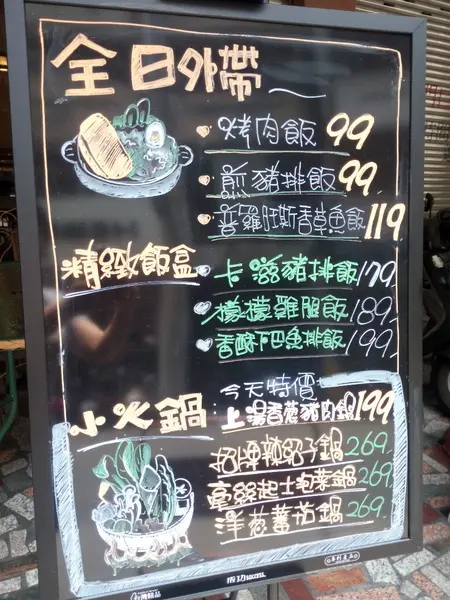 全日外帶
烤肉飯 99
煎豬排飯 99
普羅旺斯香草魚飯 119
精緻飯盒
卡滋豬排飯 179
檸檬雞腿飯 189
香酥下巴魚排飯 199
今天特價
小火鍋：上湯香蔥豬肉鍋 199
招牌辣妃子鍋 269
牽絲起士泡菜鍋 269
洋蔥蕃茄鍋 269